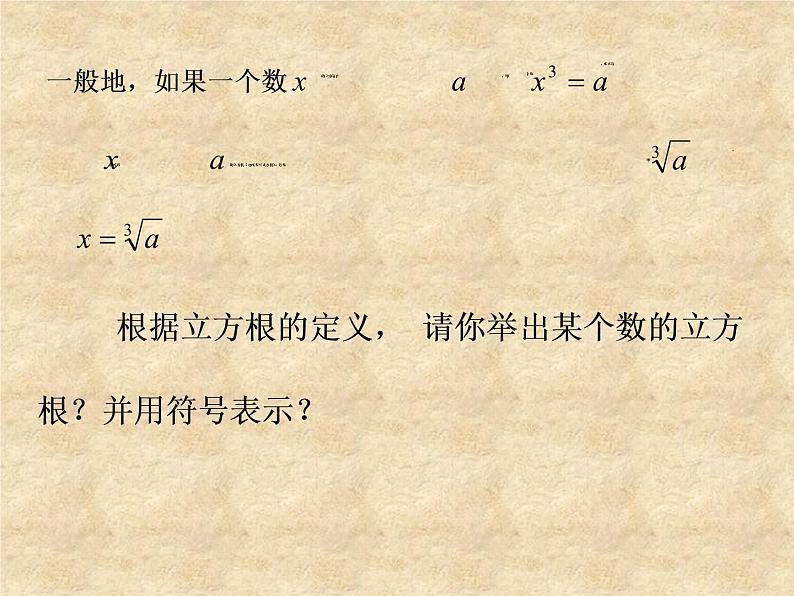 一般地，如果一个数 x a x³ = a
x a ∛a
x = ∛a
根据立方根的定义， 请你举出某个数的立方
根？并用符号表示？